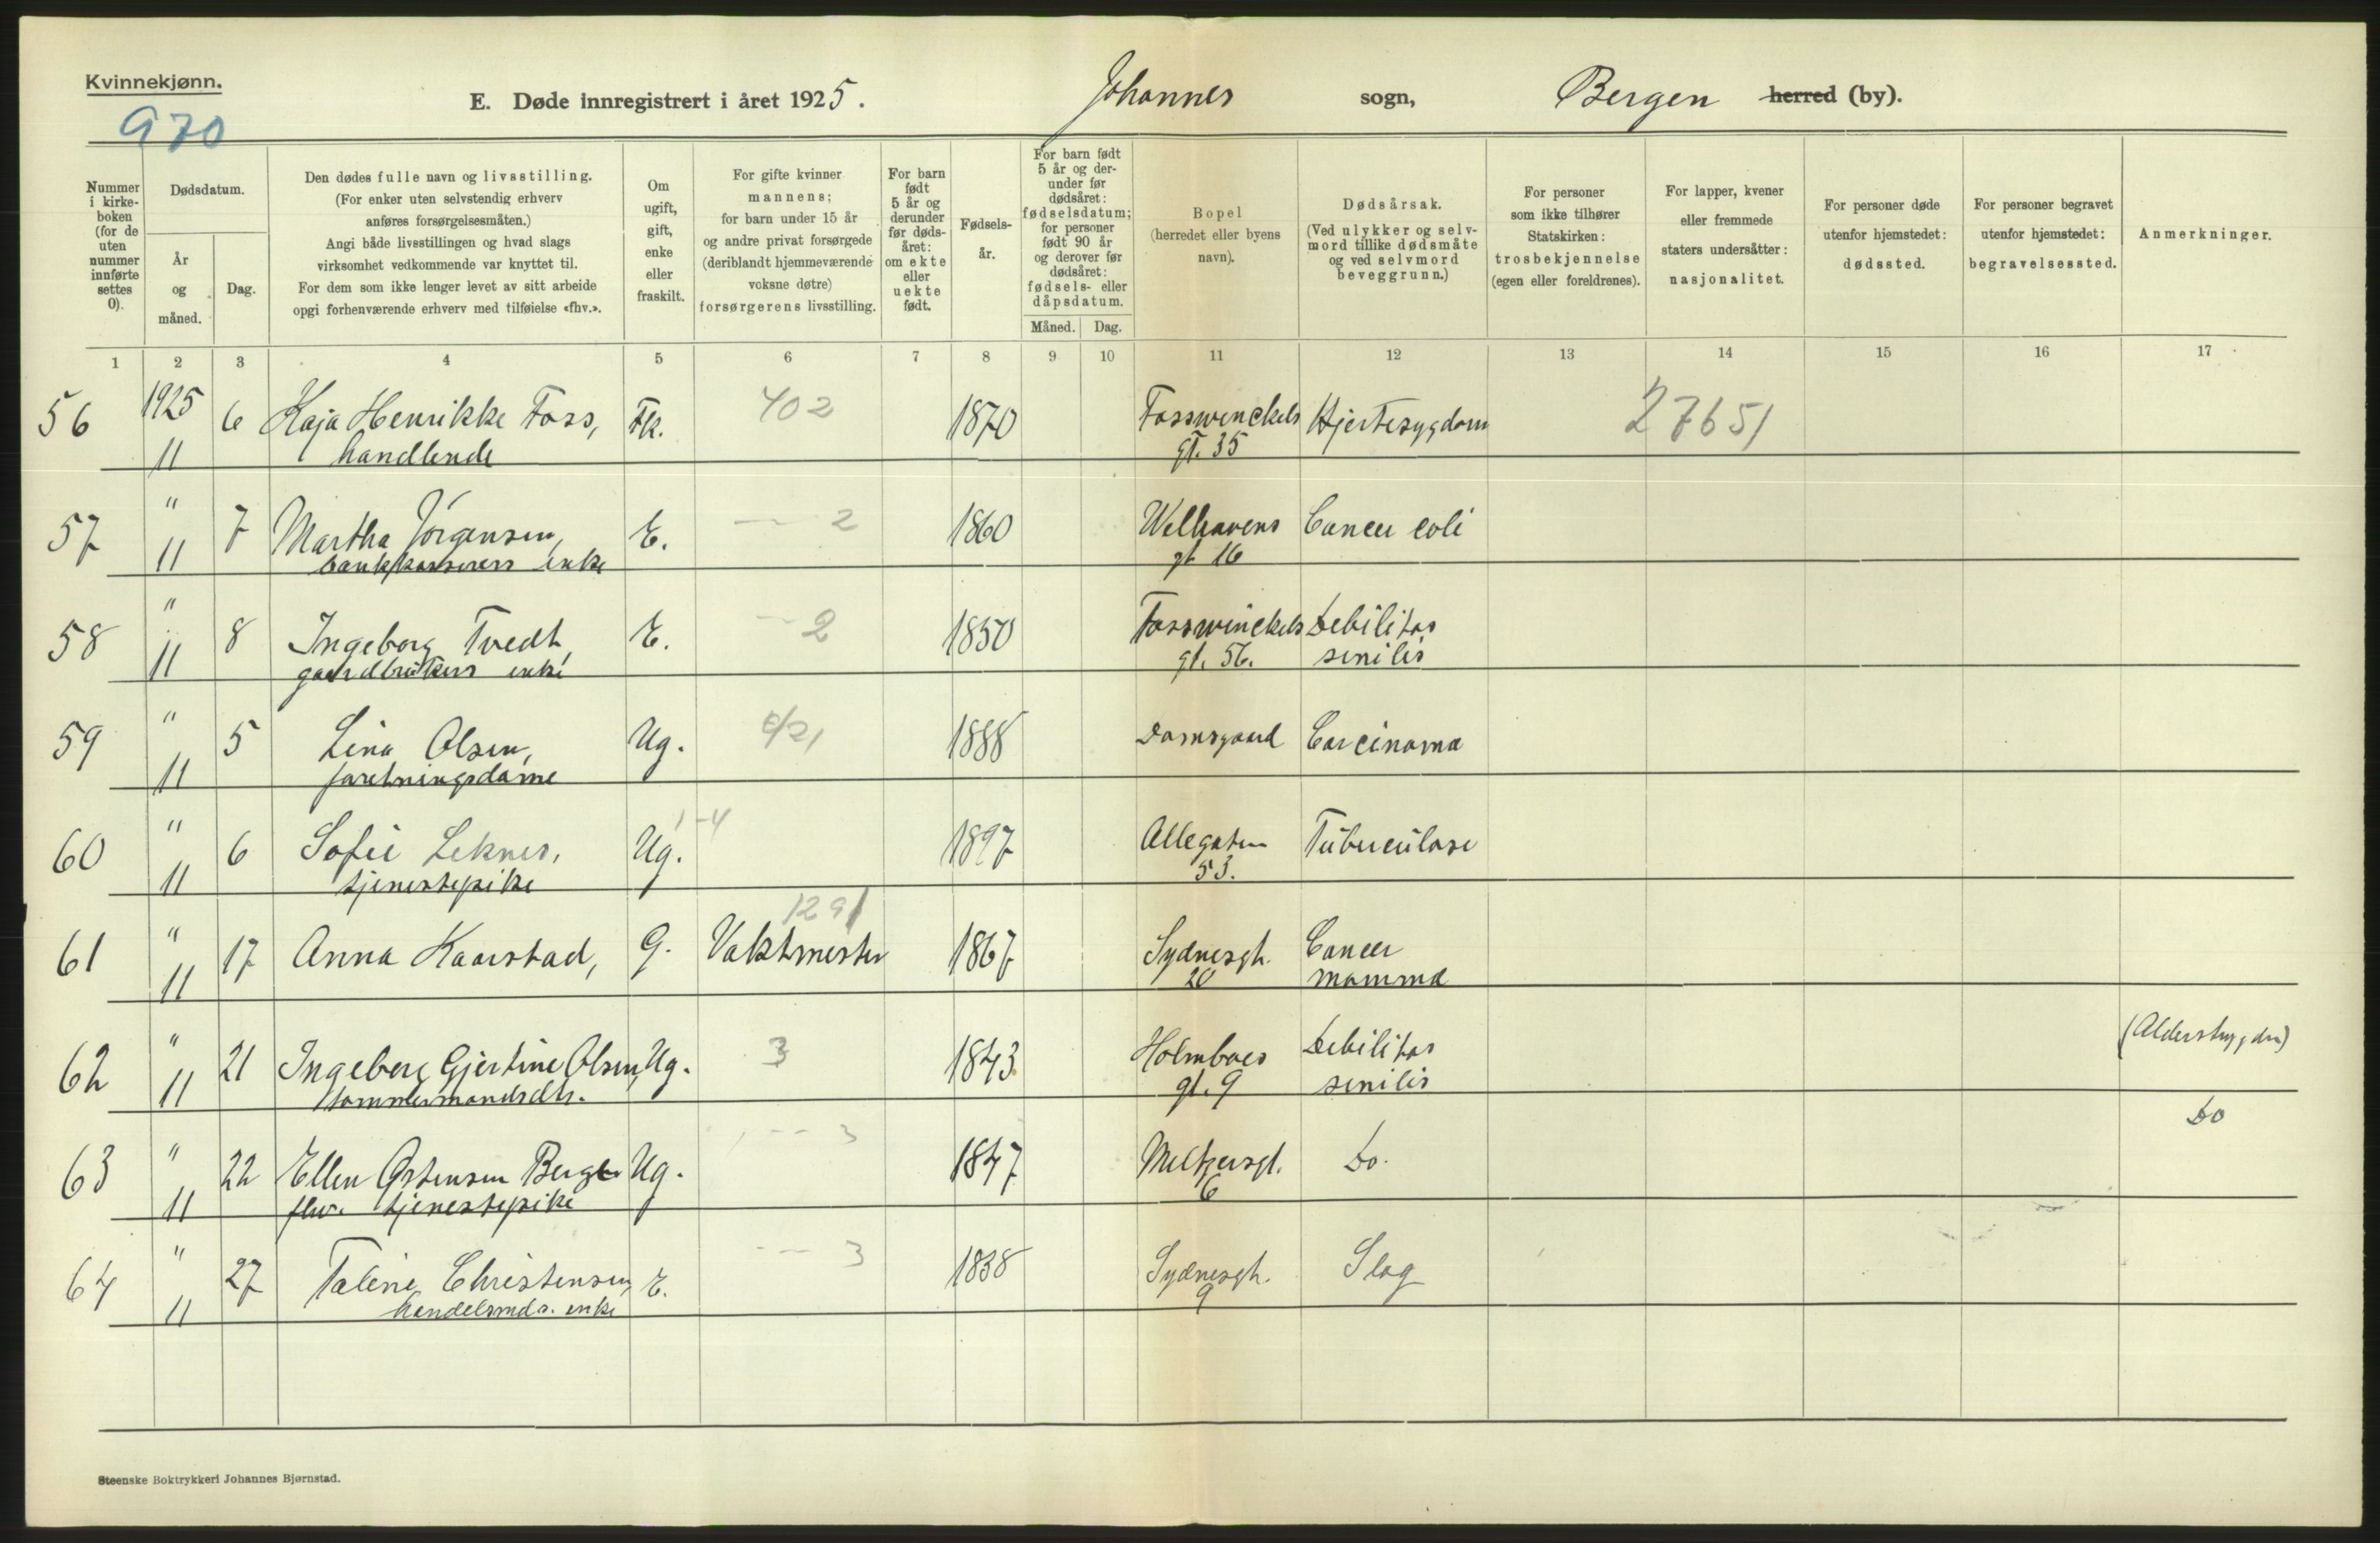 Kvinnekjønn.
970
E. Døde innregistrert i året 1925. Johannes sogn, Bergen herred (by).
Nummer i kirke-boken (for de uten nummer innførte settes 0).
Dødsdatum.
År og måned.
Dag.
Den dødes fulle navn og livsstilling.
(For enker uten selvstendig erhverv
anføres forsørgelsesmåten.)
Angi både livsstillingen og hvad slags
virksomhet vedkommende var knyttet til.
For dem som ikke lenger levet av sitt arbeide
opgi forhenværende erhverv med tilføielse «fhv.».
Om
ugift,
gift,
enke
eller
fraskilt.
For gifte kvinner
mannens;
for barn under 15 år
og andre privat forsørgede
(deriblandt hjemmeværende
voksne døtre)
forsørgerens livsstilling.
For barn
født
5 år og
derunder
før døds-
året:
om ekte
eller
uekte
født.
Fødsels-
år.
For barn født
5 år og der-
under før
dødsåret:
fødselsdatum;
for personer
født 90 år
og derover før
dødsåret:
fødsels- eller
dåpsdatum.
Måned. Dag.
Bopel
(herredet eller byens
navn).
Dødsårsak.
(Ved ulykker og selv-
mord tillike dødsmåte
og ved selvmord
beveggrunn.)
For personer
som ikke tilhører
Statskirken:
trosbekjennelse
(egen eller foreldrenes).
For lapper, kvener
eller fremmede
staters undersåtter:
nasjonalitet.
For personer døde
utenfor hjemstedet:
dødssted.
For personer begravet
utenfor hjemstedet:
begravelsessted.
Anmerkninger.
1 2 3 4 5 6 7 8 9 10 11 12 13 14 15 16 17
56 1925 6 Kaja Henrikke Foss, Fk. 402 1870 Fosswinckels Hjertesygdom 27651
11 handlende gt. 35
57 " 7 Martha Jörgensen, E. 2 1860 Welhavens Cancer coli
11 bankkasserers enke gt 16
58 " 8 Ingeborg Tvedt, E. 2 1850 Fosswinckels Debilitas
11 gaardbrukers enke gt. 56. senilis
59 " 5 Lina Olsen, Ug. 1888 Damsgaard Carcinoma
11 foretningsdame
60 " 6 Sofie Leknes, Ug. 1-4 1897 Allegaten Tuberculose
11 tjenestepike 53.
1291
61 " 17 Anna Kaarstad, G. Vaktmester 1867 Sydnesgt. Cancer
11 20 mamma
62 " 21 Ingeborg Gjertine Olsen, Ug. 3 1843 Holmboes Debilitas (Alderstygdn)
11 tømmermandsdtr. gt. 9 senilis
63 " 22 Ellen Østensen Berge Ug. 3 1847 Meltzersgt. Do. Do
11 fhv. tjenestepike 6
64 " 27 Taline Christensen, E. 3 1838 Sydnesgt. Slag
11 handelsmds. enke 9
Steenske Boktrykkeri Johannes Bjørnstad.